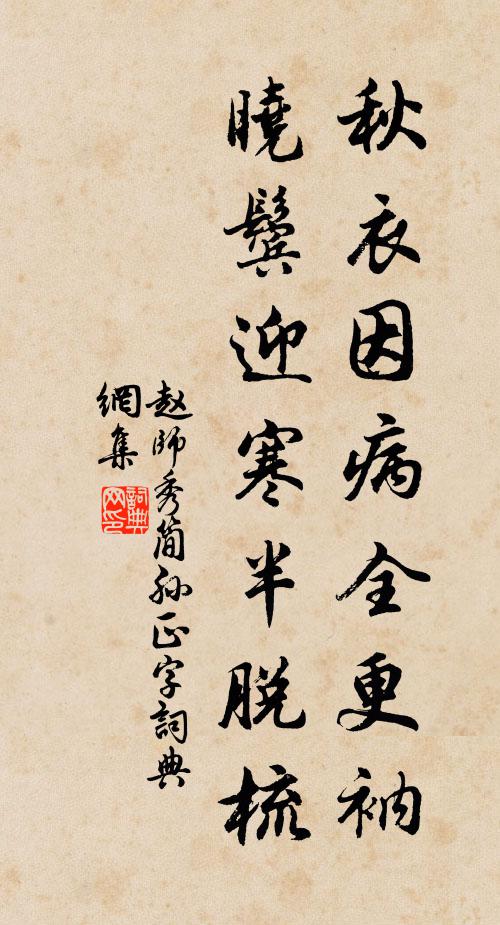 秋衣因病全更衲
曉鬢迎寒半脱梳
赵師秀简孙正字詞典
網集
詞典
网印